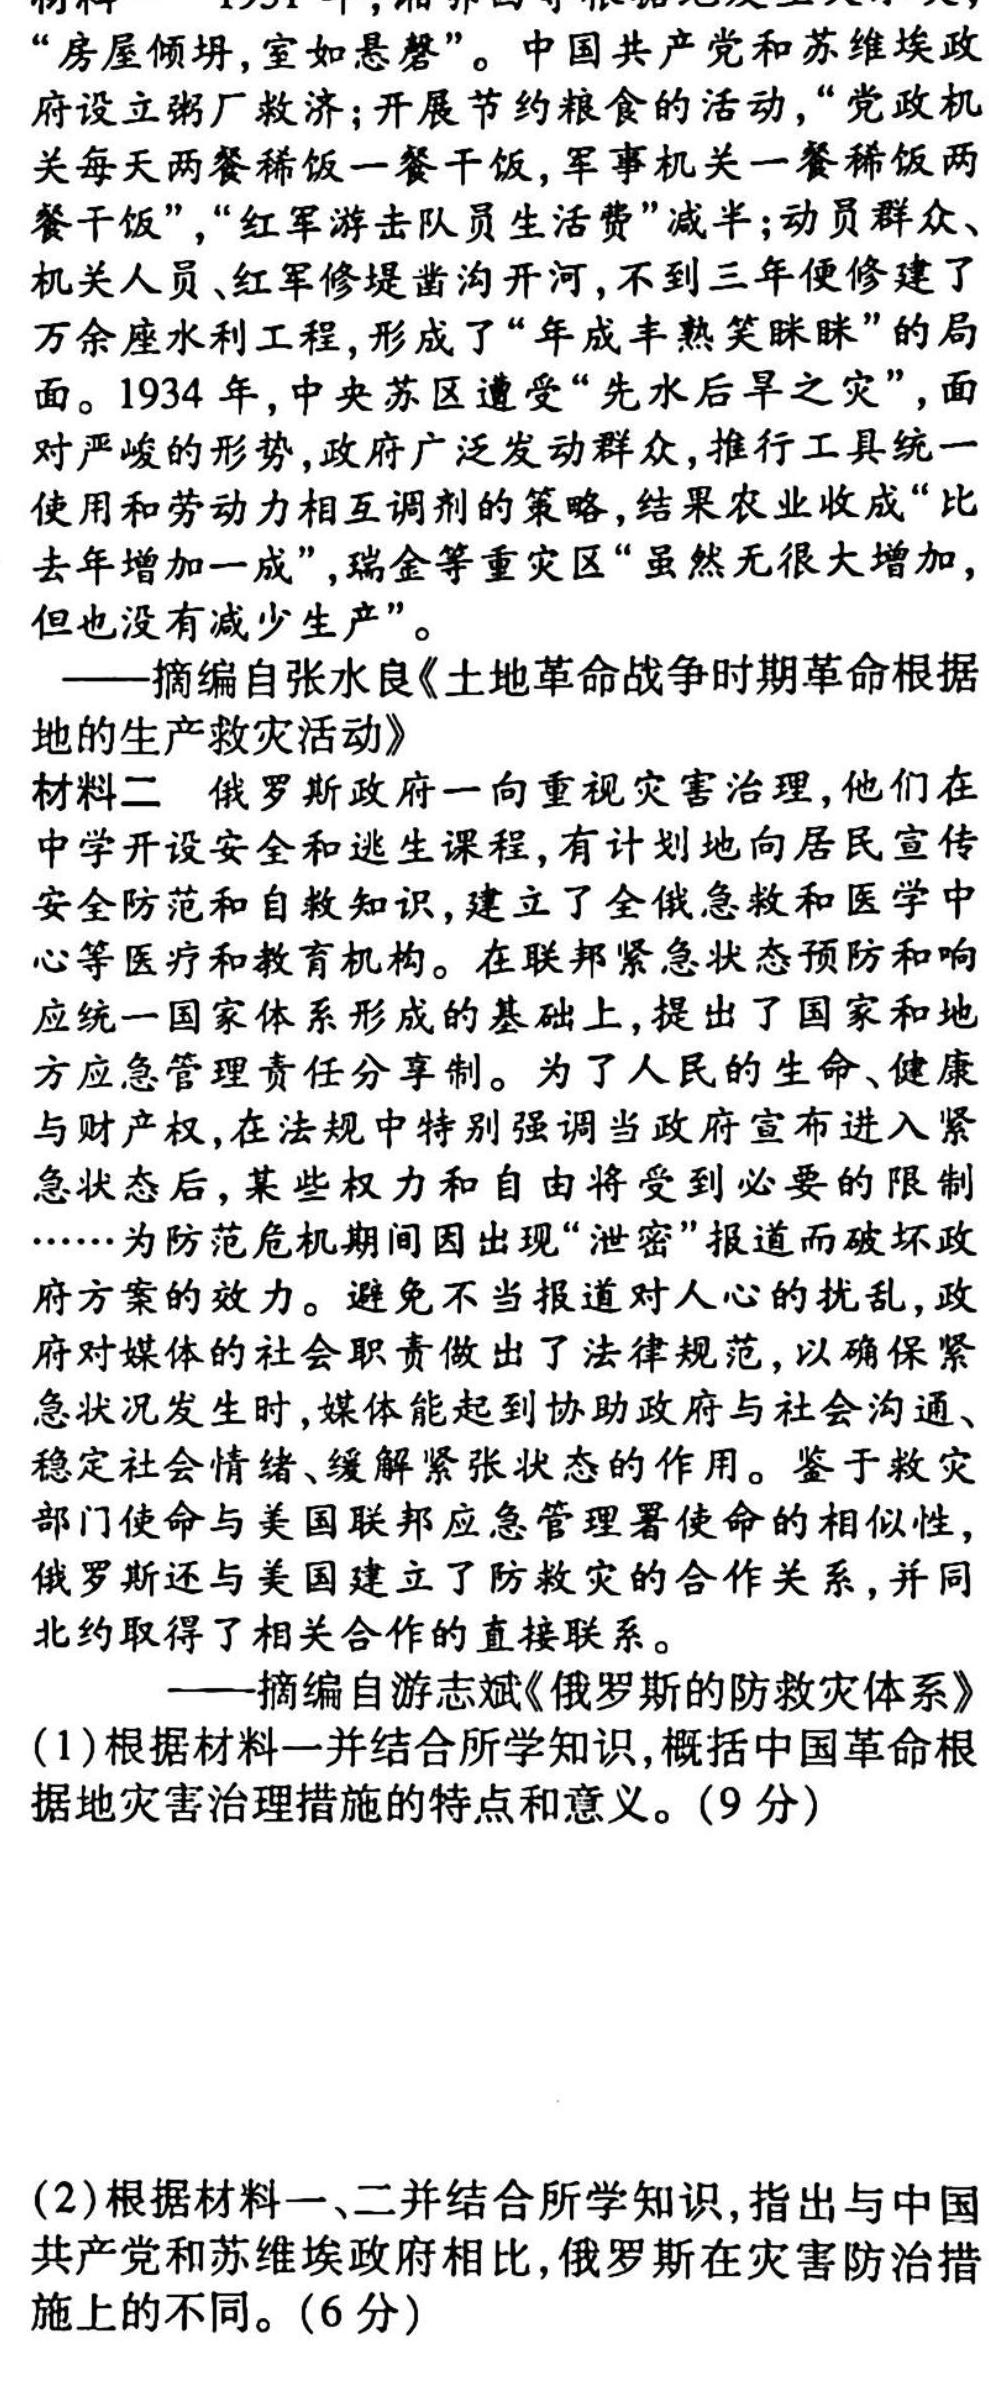 “房屋倾坍,室如悬磬”。中国共产党和苏维埃政
府设立粥厂救济;开展节约粮食的活动,“党政机
关每天两餐稀饭一餐干饭,军事机关一餐稀饭两
餐干饭”,“红军游击队员生活费”减半;动员群众、
机关人员、红军修堤凿沟开河,不到三年便修建了
万余座水利工程,形成了“年成丰熟笑眯眯”的局
面。1934 年,中央苏区遭受“先水后旱之灾”,面
对严峻的形势,政府广泛发动群众,推行工具统一
使用和劳动力相互调剂的策略,结果农业收成“比
去年增加一成”,瑞金等重灾区“虽然无很大增加,
但也没有减少生产”。
——摘编自张水良《土地革命战争时期革命根据
地的生产救灾活动》
材料二　俄罗斯政府一向重视灾害治理,他们在
中学开设安全和逃生课程,有计划地向居民宣传
安全防范和自救知识,建立了全俄急救和医学中
心等医疗和教育机构。在联邦紧急状态预防和响
应统一国家体系形成的基础上,提出了国家和地
方应急管理责任分享制。为了人民的生命、健康
与财产权,在法规中特别强调当政府宣布进入紧
急状态后,某些权力和自由将受到必要的限制
……为防范危机期间因出现“泄密”报道而破坏政
府方案的效力。避免不当报道对人心的扰乱,政
府对媒体的社会职责做出了法律规范,以确保紧
急状况发生时,媒体能起到协助政府与社会沟通、
稳定社会情绪、缓解紧张状态的作用。鉴于救灾
部门使命与美国联邦应急管理署使命的相似性,
俄罗斯还与美国建立了防救灾的合作关系,并同
北约取得了相关合作的直接联系。
——摘编自游志斌《俄罗斯的防救灾体系》
(1)根据材料一并结合所学知识,概括中国革命根
据地灾害治理措施的特点和意义。(9 分)
(2)根据材料一、二并结合所学知识,指出与中国
共产党和苏维埃政府相比,俄罗斯在灾害防治措
施上的不同。(6 分)